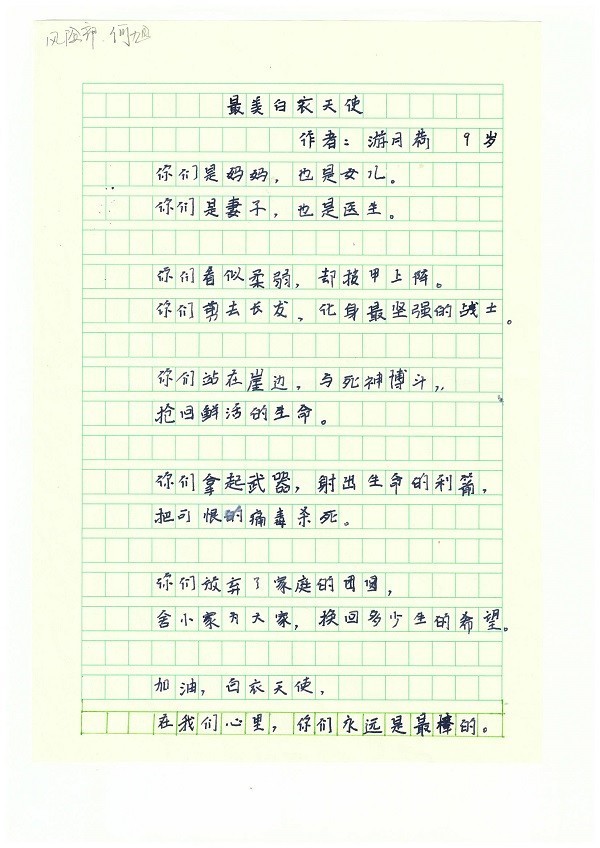 风险部.何旭
最美白衣天使
作者：游月荷 9岁
你们是妈妈，也是女儿。
你们是妻子，也是医生。
你们看似柔弱，却披甲上阵。
你们剪去长发，化身最坚强的战士。
你们站在崖边，与死神博斗，
抢回鲜活的生命。
你们拿起武器，射出生命的利箭，
把可恨的病毒杀死。
你们放弃了家庭的团圆，
舍小家为大家，换回多少生的希望。
加油，白衣天使，
在我们心里，你们永远是最棒的。